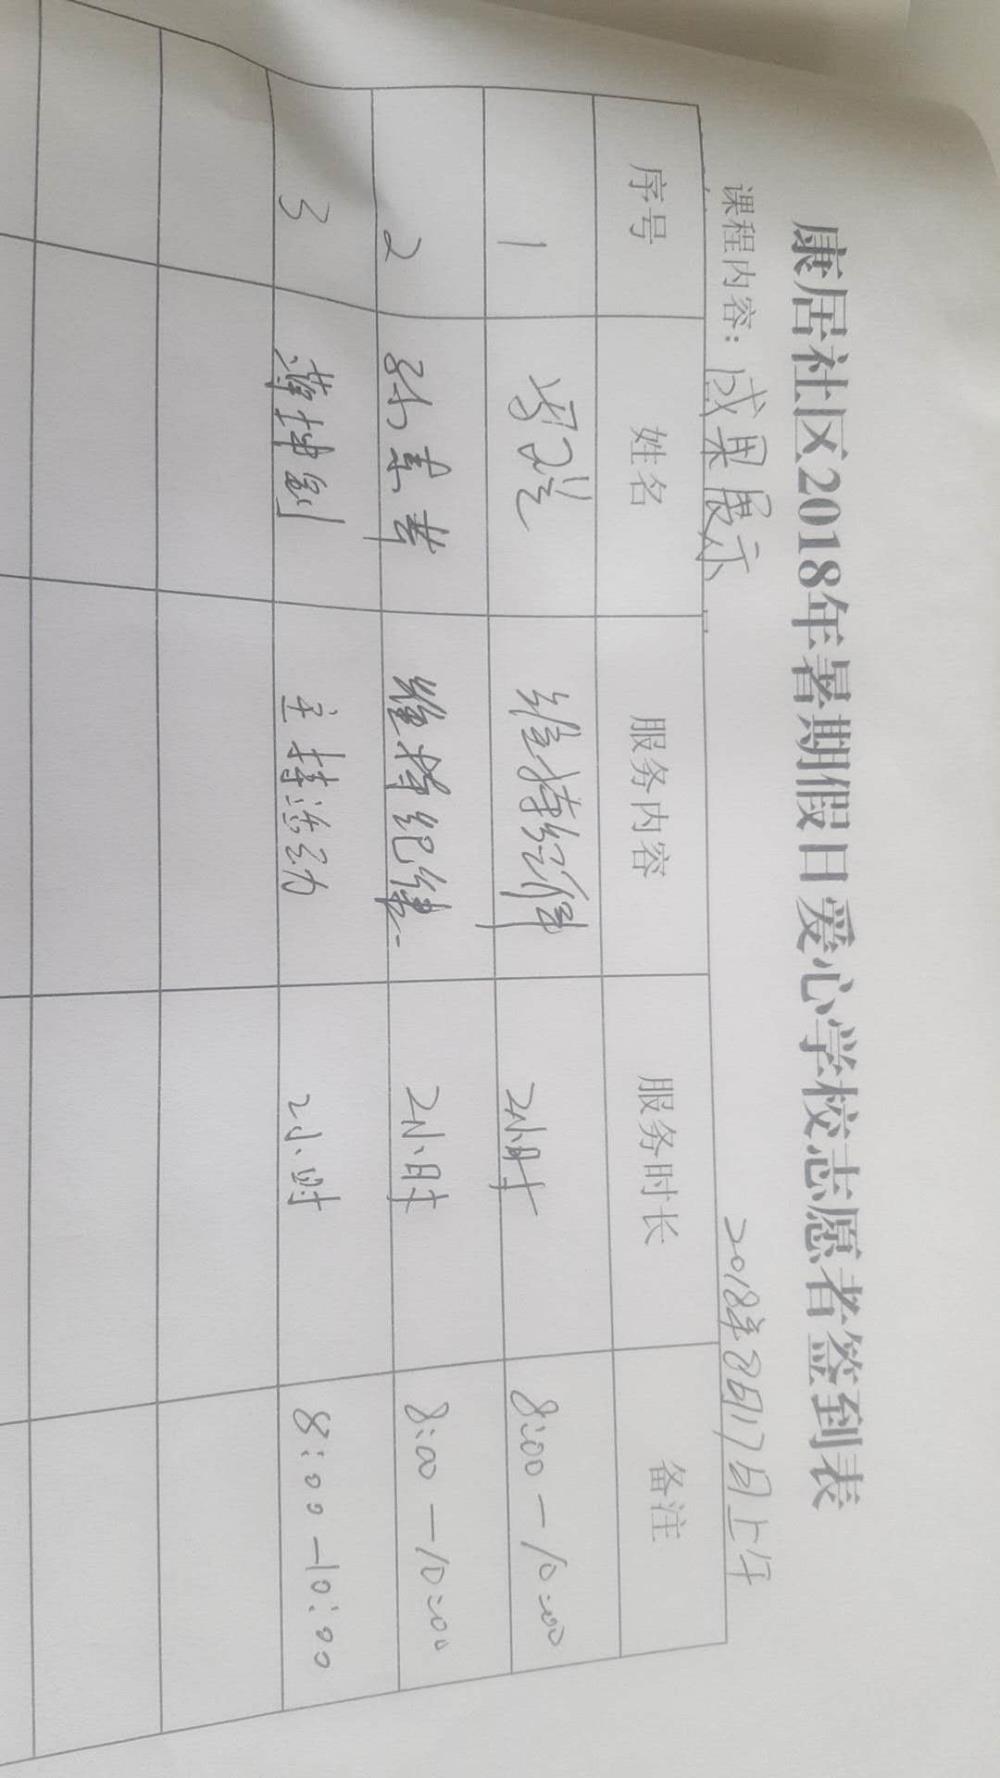 康居社区2018年暑期假日爱心学校志愿者签到表
课程内容：成果展示 2018年8月17日上午
序号 姓名 服务内容 服务时长 备注
1 维持纪律 2小时 8:00－10:00
2 维持纪律 2小时 8:00－10:00
3 主持活动 2小时 8:00－10:00